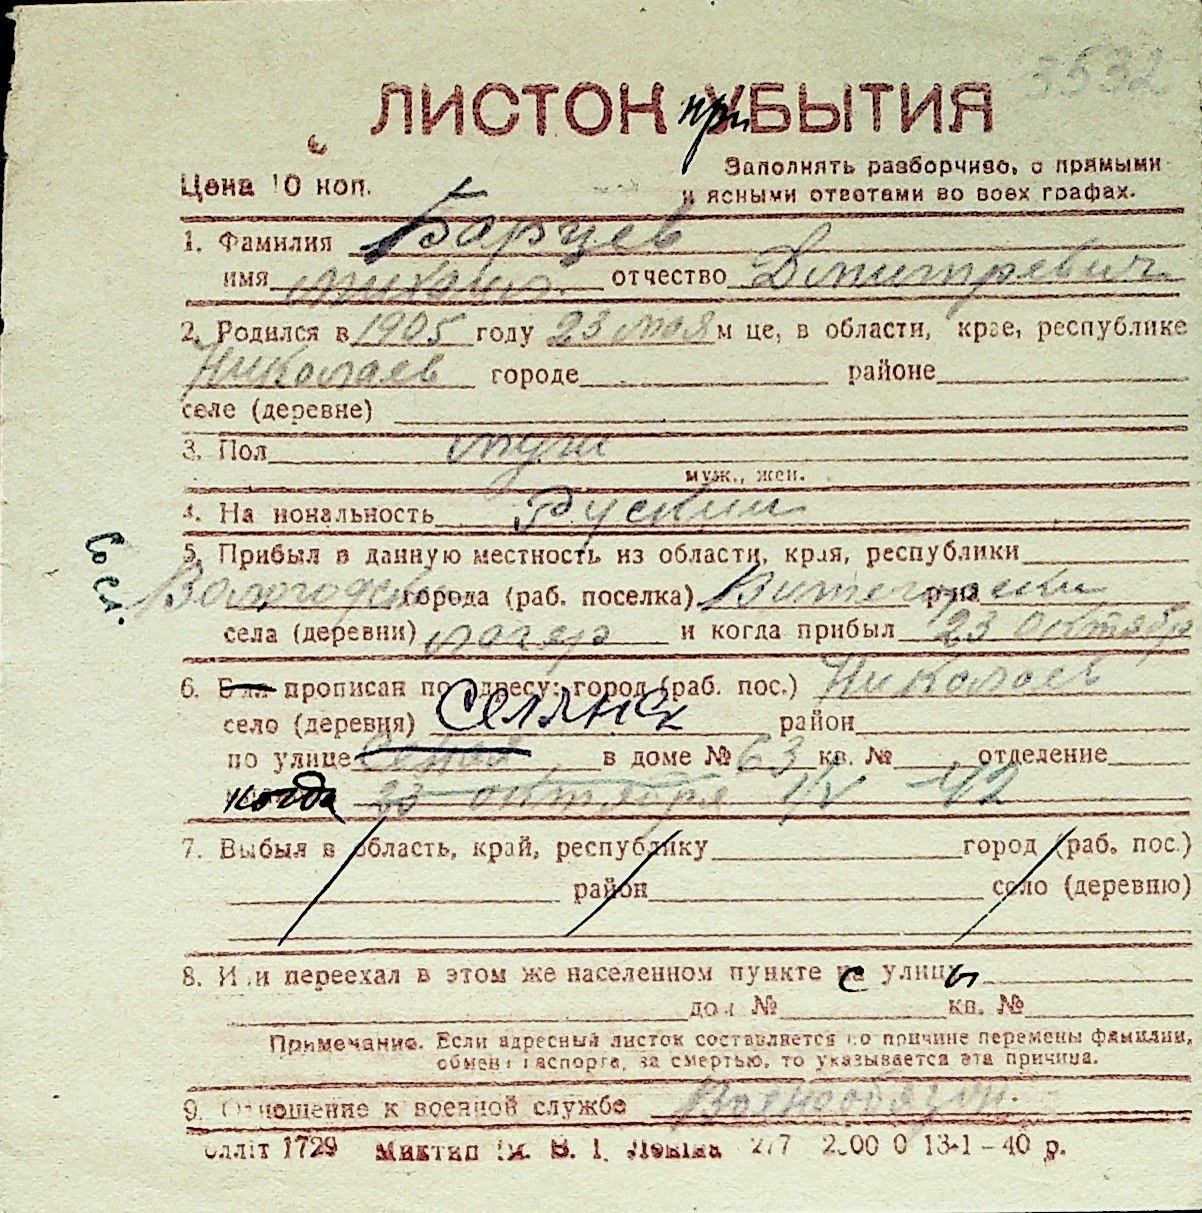 3532
ЛИСТОК при УБЫТИЯ
Цена 10 коп.
Заполнять разборчиво, с прямыми
и ясными ответами во всех графах.
1. Фамилия Барцев
имя отчество Дмитревич
2. Родился в 1905 году 23 мая м це, в области, крае, республике
Николаев городе районе
селе (деревне)
3. Пол муж
муж., жен.
4. На иональность Руский
5. Прибыл в данную местность из области, края, республики
Вологодск города (раб. поселка) р-на
села (деревни) лагер и когда прибыл 23 октября
6. прописан по адресу: город (раб. пос.) Николаев
село (деревня) Селянск район
по улице в доме № 63 кв. № отделение
когда 23 октября 42
7. Выбыл в область, край, республику город (раб. пос.)
район село (деревню)
8. Или переехал в этом же населенном пункте с улицы
дом № кв. №
Примечание. Если адресный листок составляется по причине перемены фамилии,
обмена паспорта, за смертью, то указывается эта причина.
9. Отношение к военной службе Военнобязан.
Олліт 1729 Миктип ім. В. І. Леніна 2/7 13-1-40 р.